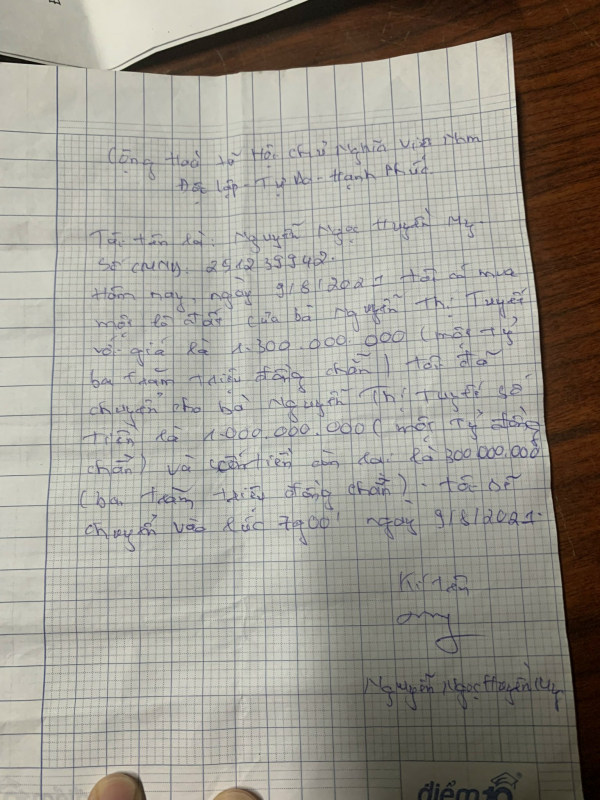 Cộng Hoà Xã Hội Chủ Nghĩa Việt Nam
Độc lập - Tự Do - Hạnh Phúc.
Tôi tên là: Nguyễn Ngọc Huyền My.
Số CMND: 251239942.
Hôm nay, ngày 9/8/2021 tôi có mua
một lô đất của bà Nguyễn Thị Tuyết
với giá là 1.300.000.000 (một tỷ
ba trăm triệu đồng chẵn) tôi đã
chuyển cho bà Nguyễn Thị Tuyết số
tiền là 1.000.000.000 (một tỷ đồng
chẵn) và số tiền còn lại là 300.000.000đ
(ba trăm triệu đồng chẵn). tôi sẽ
chuyển vào lúc 7g00' ngày 9/8/2021.
Kí tên
Nguyễn Ngọc Huyền My
điểm 10